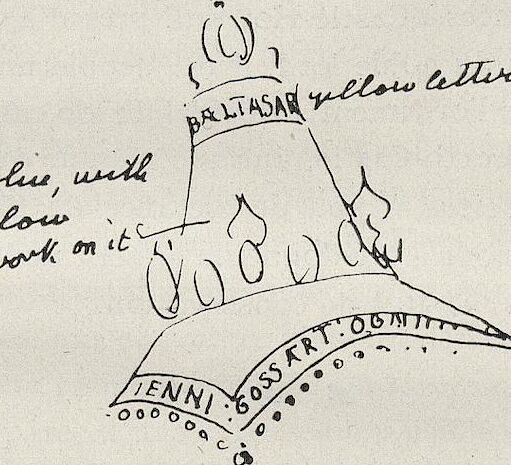 BÆLTASAR yellow letter
blue, with
low
work on it
IENNI: GOSSÆRT: OGM